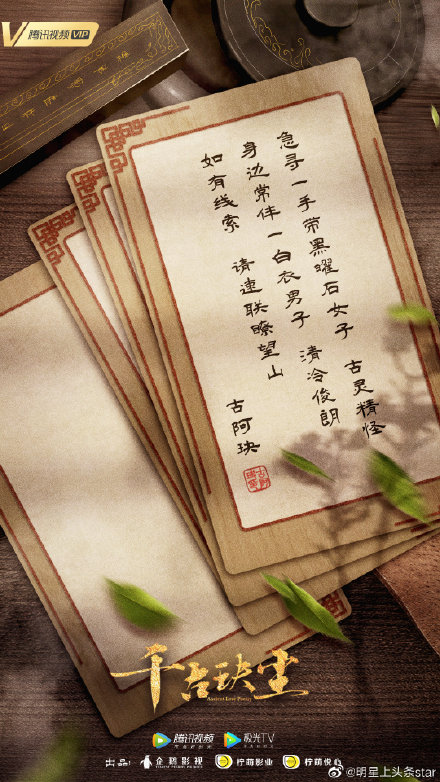 腾讯视频 VIP
急寻一手带黑曜石女子 古灵精怪
身边常伴一白衣男子 清冷俊朗
如有线索 请速联瞭望山
古阿玦
千古玦尘
Ancient Love Poetry
腾讯视频
极光TV
出品：
企鹅影视
柠萌影业
柠萌悦心
@明星上头条star